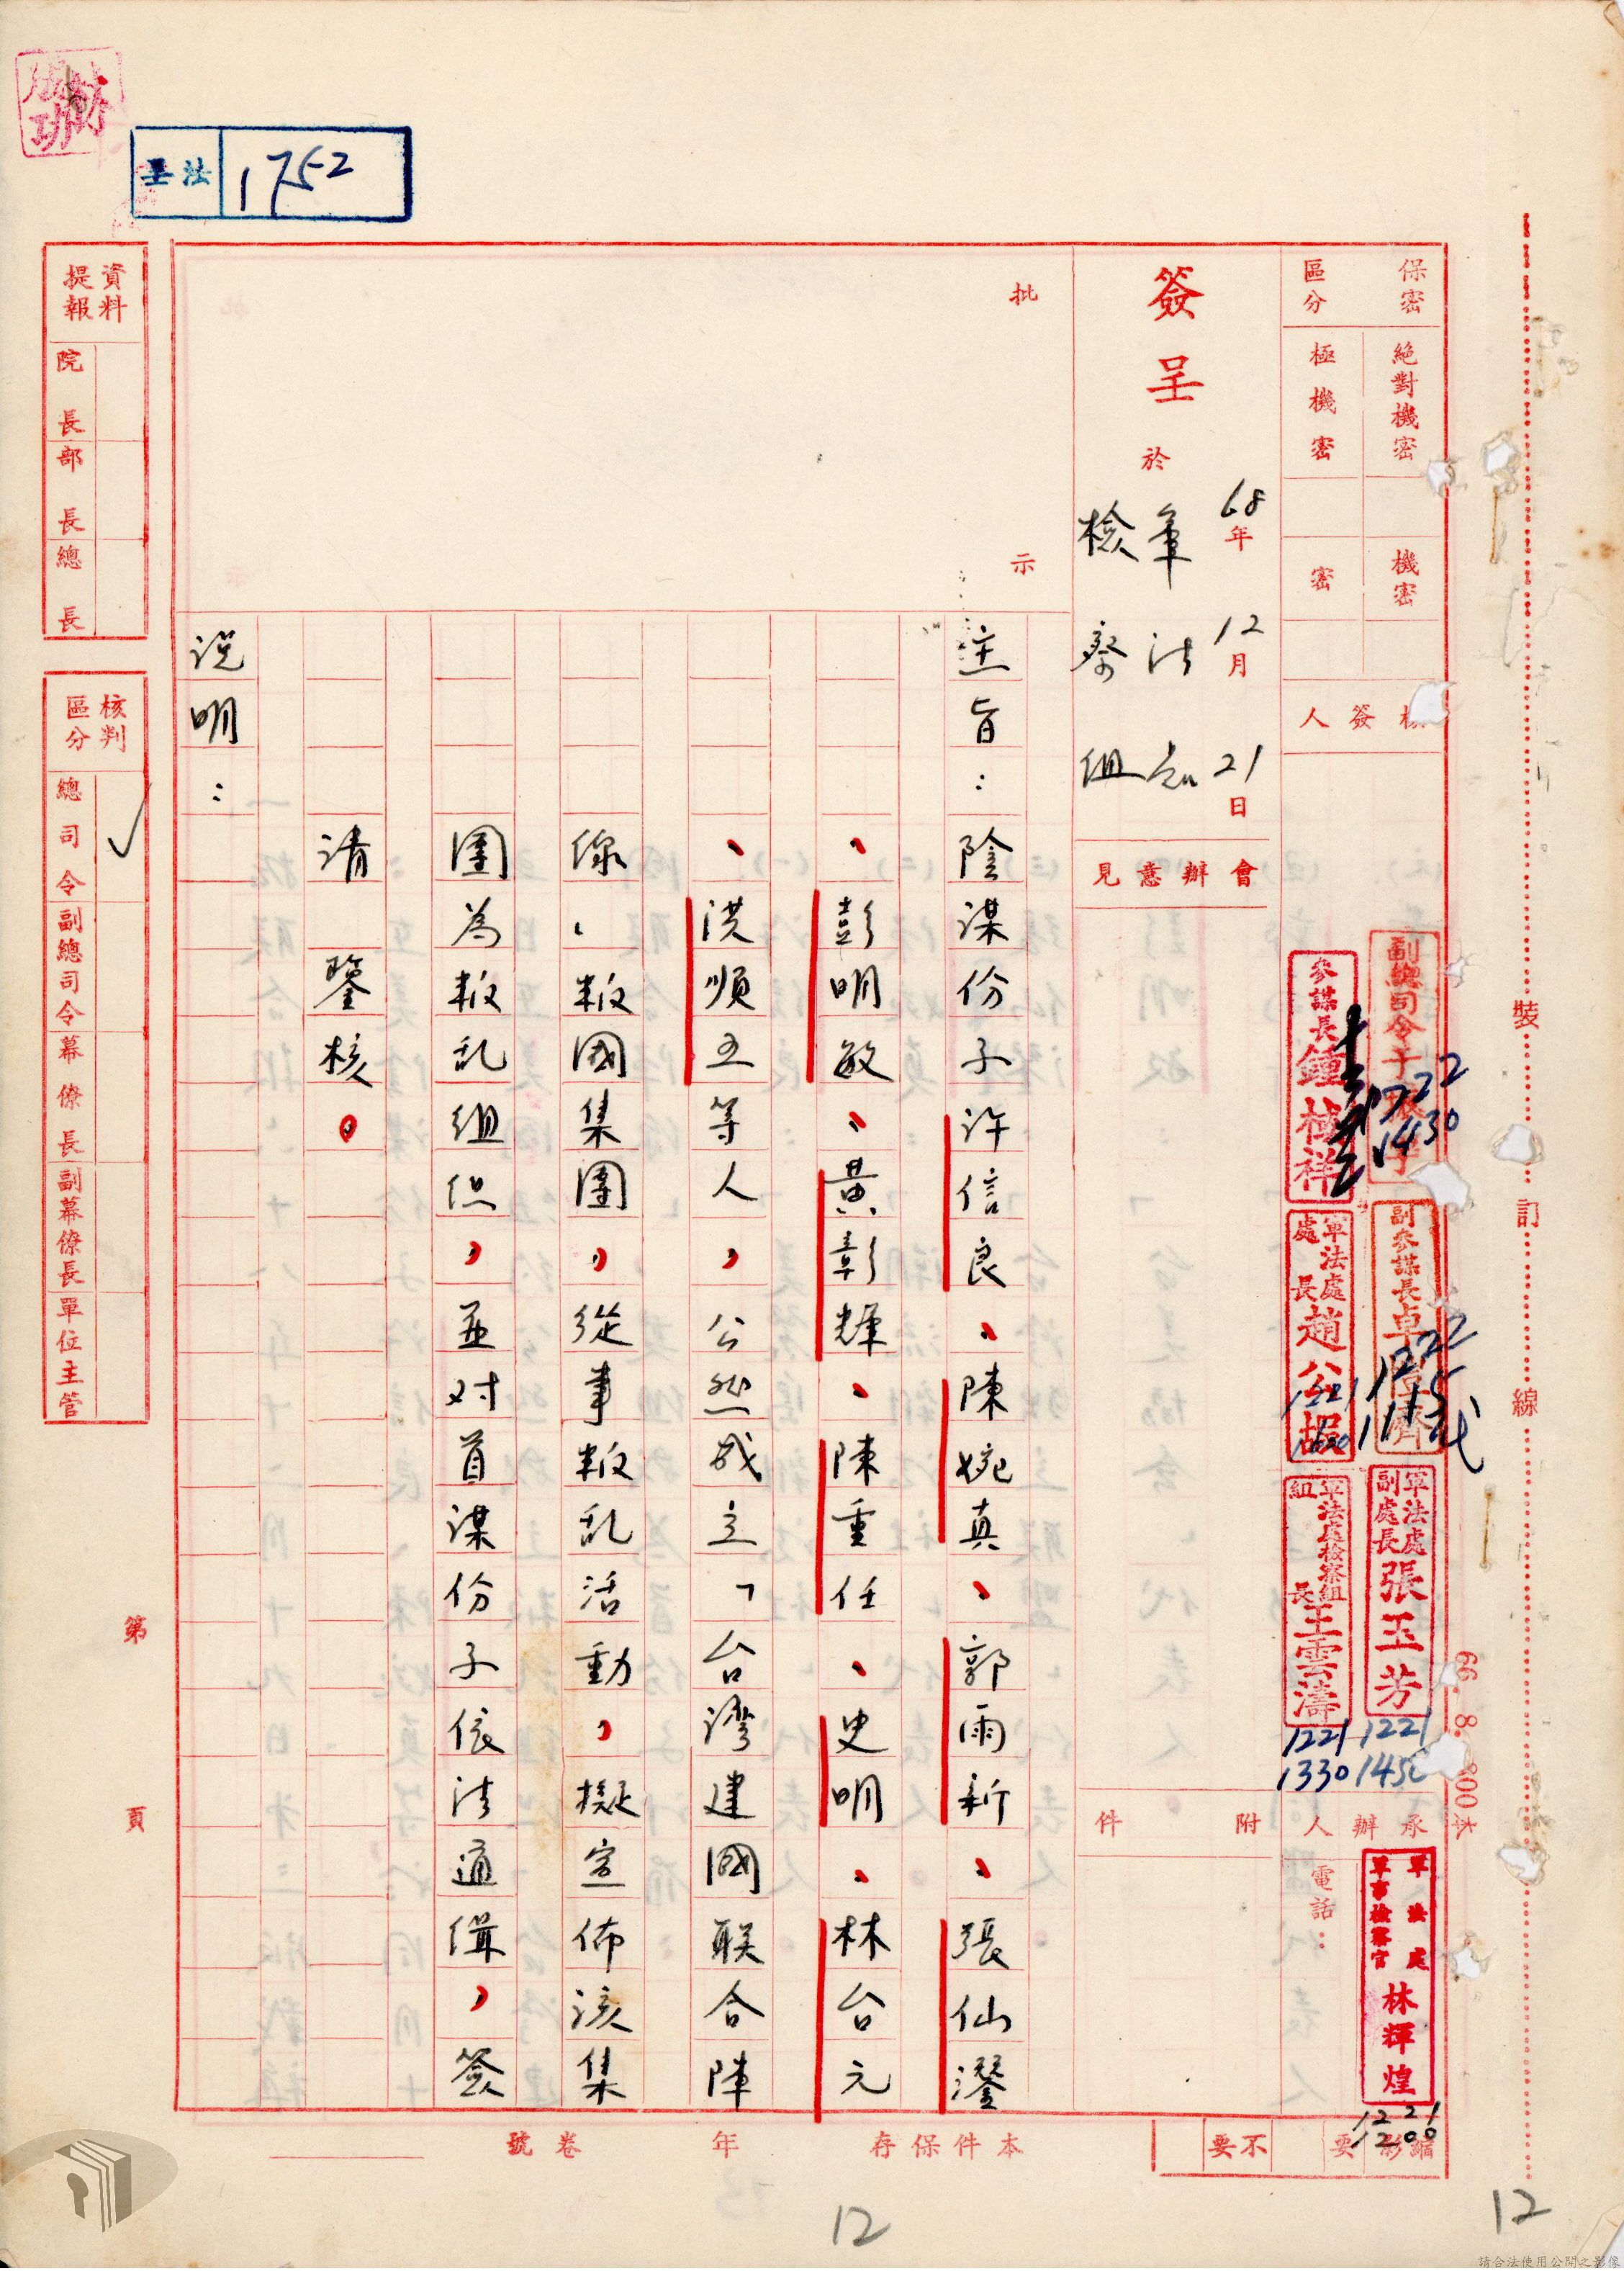 法呈 1752
保密區分
絕對機密
極機密
機密
密
簽人
簽呈 於 68年12月21日
軍法處
檢察組
會辦意見
附件
承辦人
電話：
批示
主旨：陰謀份子許信良、陳婉真、郭雨新、張仙灃
、彭明敏、黃彰輝、陳重任、史明、林台元
、洪順五等人，公然成立「台灣建國联合陣
線」叛國集團，從事叛乱活動，擬宣佈該集
團為叛乱組织，並对首謀份子依法通缉，簽
請 鑒核。
說明：
參謀長鍾 祥
副總司令于
軍法處處長趙公嘏
1221
副參謀長卓
1222
1115
1222
1430
軍法處檢察組組長王雲濤
1221
1330
軍法處副處長張玉芳
1221
軍法處軍事檢察官林輝煌
1221
1200
裝訂線
66. 8. 800本
縮影 要 不要
本件保存 年 卷號
資料提報
院長
部長
總長
核判區分
總司令 ✓
副總司令
幕僚長
副幕僚長
單位主管
第 頁
12
12
請合法使用公開之影像